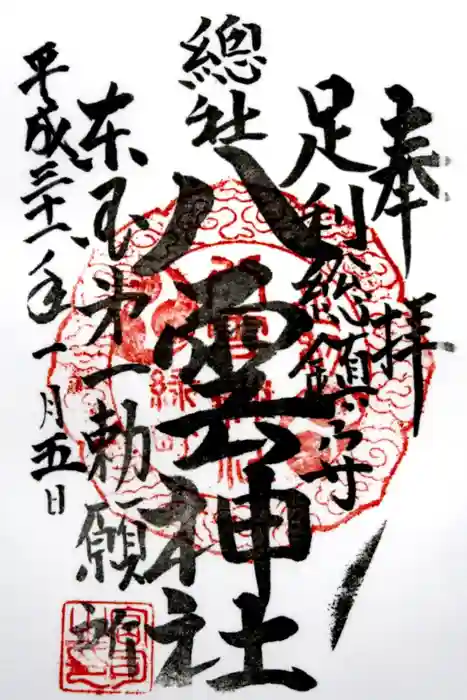 奉拝
足利総鎮守
總社
八雲神社
東国第一勅願所
平成三十一年一月五日